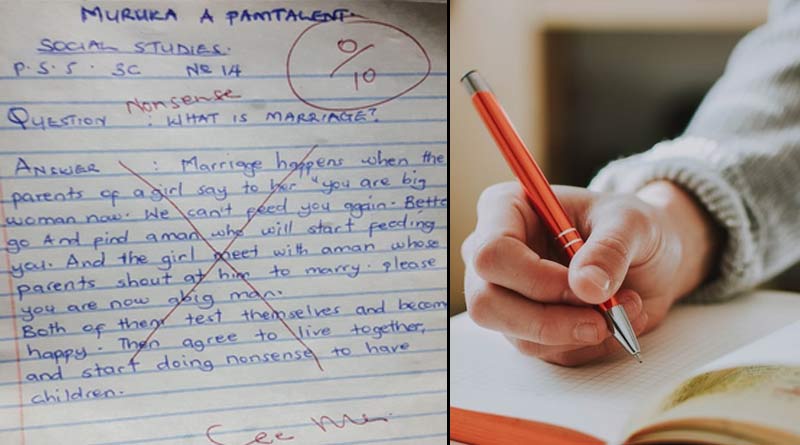 MURUKA A PAMTALENT.
SOCIAL STUDIES.
P.S.S. 3C No 14
0/10
Nonsense
QUESTION : WHAT IS MARRIAGE?
ANSWER : Marriage happens when the
parents of a girl say to her "you are big
woman now. We can't feed you again. Bette
go And find aman who will start feeding
you. And the girl meet with aman whose
parents shout at him to marry. please
you are now abig man.
Both of them test themselves and becom
happy. Then agree to live together,
and start doing nonsense to have
children.
See Me.